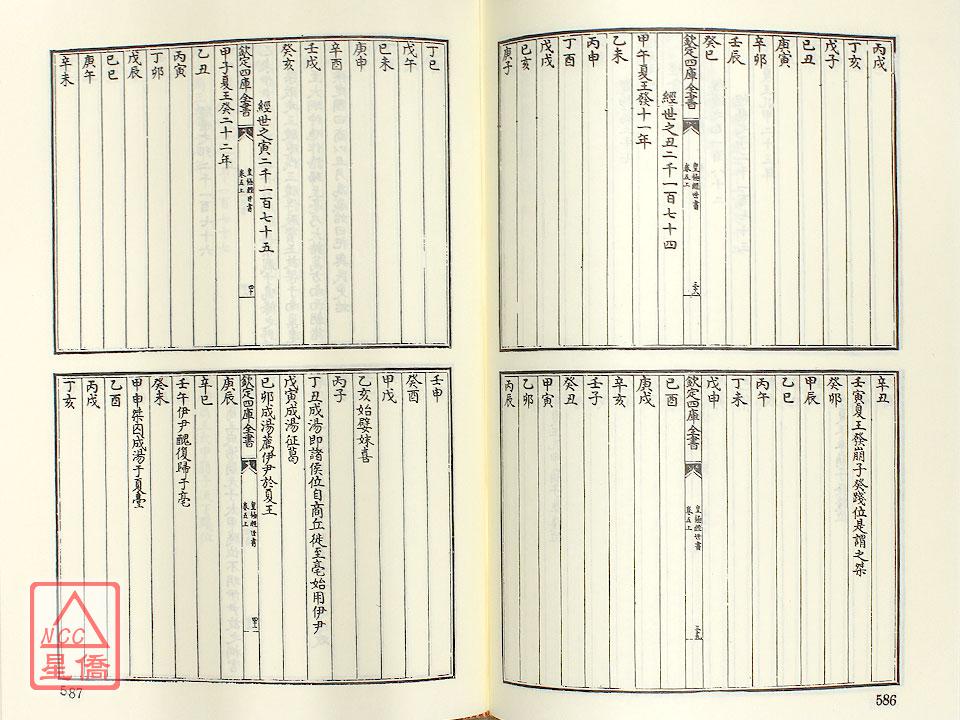 丙戌
丁亥
戊子
己丑
庚寅
辛卯
壬辰
癸巳
欽定四庫全書
皇極經世書
卷五上
經世之丑二千一百七十四
甲午夏王發十一年
乙未
丙申
丁酉
戊戌
己亥
庚子
辛丑
壬寅夏王發崩子癸踐位是謂之桀
癸卯
甲辰
乙巳
丙午
丁未
戊申
欽定四庫全書
皇極經世書
卷五上
己酉
庚戌
辛亥
壬子
癸丑
甲寅
乙卯
丙辰
586
丁巳
戊午
己未
庚申
辛酉
壬戌
癸亥
經世之寅二千一百七十五
欽定四庫全書
皇極經世書
卷五上
甲子夏王癸二十二年
乙丑
丙寅
丁卯
戊辰
己巳
庚午
辛未
壬申
癸酉
甲戌
乙亥始嬖妺喜
丙子
丁丑成湯即諸侯位自商丘徙至亳始用伊尹
戊寅成湯征葛
己卯成湯薦伊尹於夏王
欽定四庫全書
皇極經世書
卷五上
庚辰
辛巳
壬午伊尹醜復歸于亳
癸未
甲申桀囚成湯于夏臺
乙酉
丙戌
丁亥
587
NCC
星僑